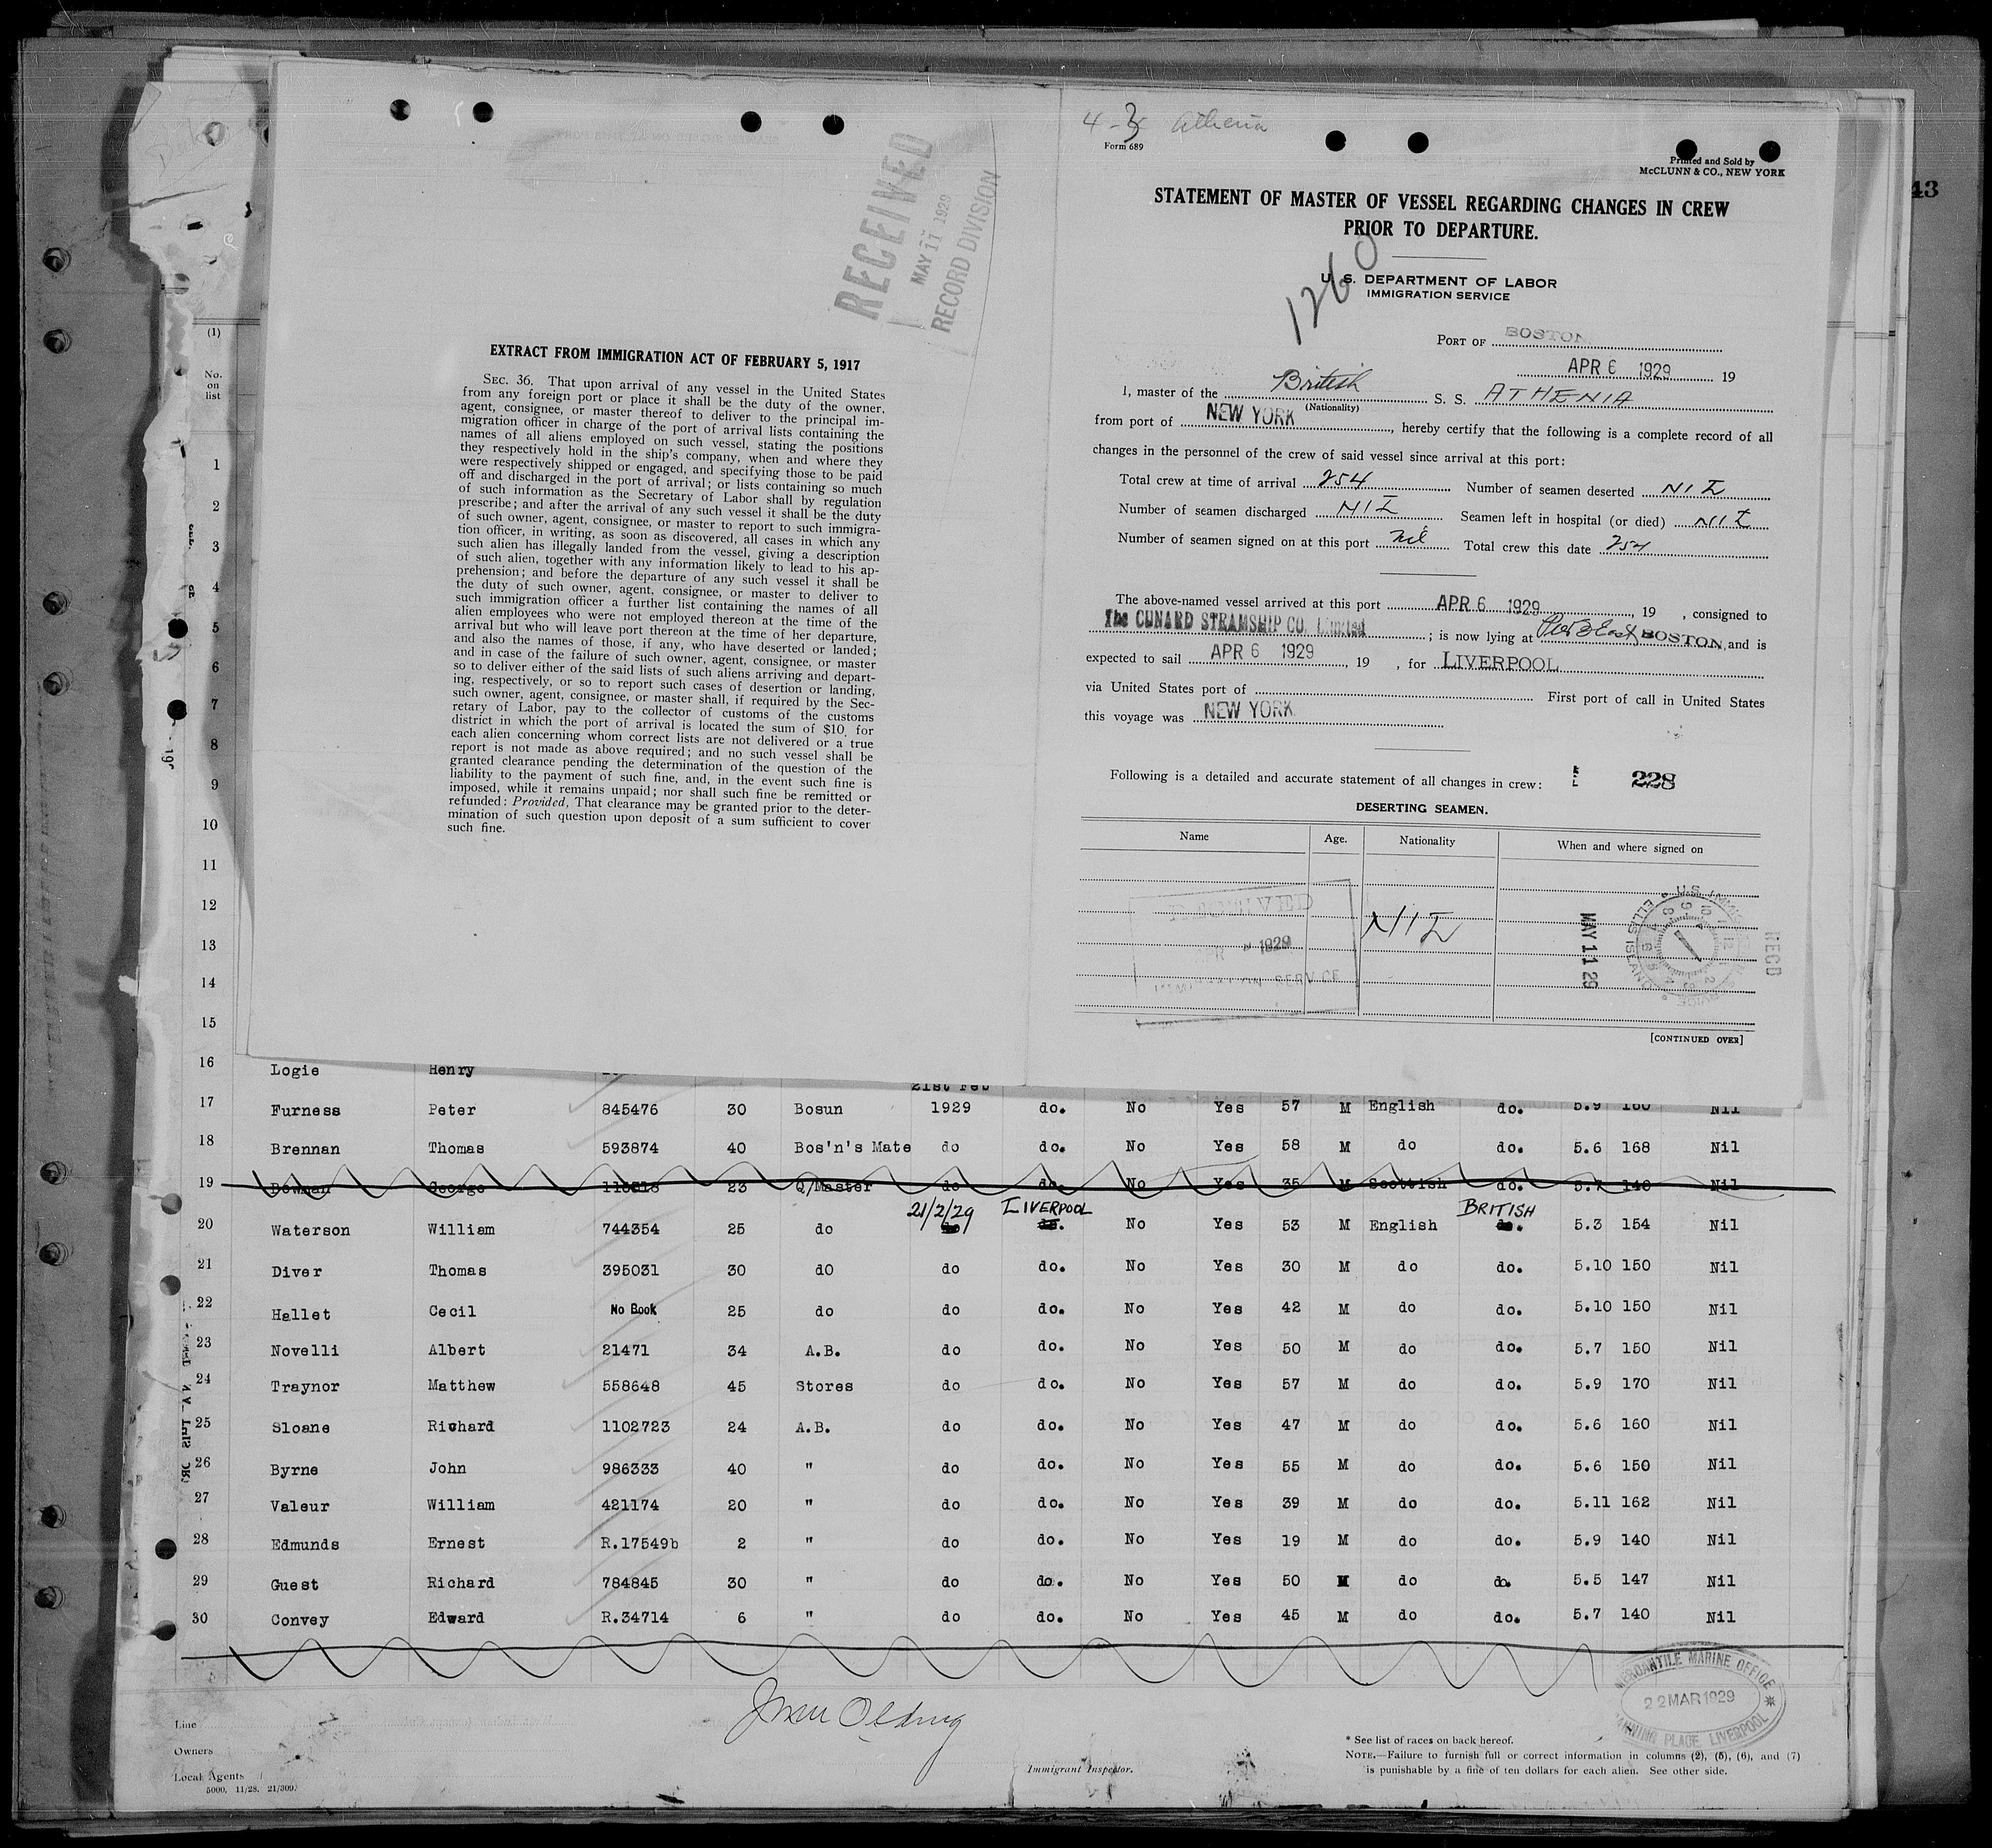 RECEIVED
MAY 11 1929
RECORD DIVISION
EXTRACT FROM IMMIGRATION ACT OF FEBRUARY 5, 1917
SEC. 36. That upon arrival of any vessel in the United States
from any foreign port or place it shall be the duty of the owner,
agent, consignee, or master thereof to deliver to the principal im-
migration officer in charge of the port of arrival lists containing the
names of all aliens employed on such vessel, stating the positions
they respectively hold in the ship's company, when and where they
were respectively shipped or engaged, and specifying those to be paid
off and discharged in the port of arrival; or lists containing so much
of such information as the Secretary of Labor shall by regulation
prescribe; and after the arrival of any such vessel it shall be the duty
of such owner, agent, consignee, or master to report to such immigra-
tion officer, in writing, as soon as discovered, all cases in which any
such alien has illegally landed from the vessel, giving a description
of such alien, together with any information likely to lead to his ap-
prehension; and before the departure of any such vessel it shall be
the duty of such owner, agent, consignee, or master to deliver to
such immigration officer a further list containing the names of all
alien employees who were not employed thereon at the time of the
arrival but who will leave port thereon at the time of her departure,
and also the names of those, if any, who have deserted or landed;
and in case of the failure of such owner, agent, consignee, or master
so to deliver either of the said lists of such aliens arriving and depart-
ing, respectively, or so to report such cases of desertion or landing,
such owner, agent, consignee, or master shall, if required by the Sec-
retary of Labor, pay to the collector of customs of the customs
district in which the port of arrival is located the sum of $10 for
each alien concerning whom correct lists are not delivered or a true
report is not made as above required; and no such vessel shall be
granted clearance pending the determination of the question of the
liability to the payment of such fine, and, in the event such fine is
imposed, while it remains unpaid; nor shall such fine be remitted or
refunded: Provided, That clearance may be granted prior to the deter-
mination of such question upon deposit of a sum sufficient to cover
such fine.
4-3 Athenia
Form 689
Printed and Sold by
McCLUNN & CO., NEW YORK
43
STATEMENT OF MASTER OF VESSEL REGARDING CHANGES IN CREW
PRIOR TO DEPARTURE.
1260
U. S. DEPARTMENT OF LABOR
IMMIGRATION SERVICE
PORT OF BOSTON
APR 6 1929 19
I, master of the British S. S. ATHENIA
(Nationality)
from port of NEW YORK, hereby certify that the following is a complete record of all
changes in the personnel of the crew of said vessel since arrival at this port:
Total crew at time of arrival 254 Number of seamen deserted NIL
Number of seamen discharged NIL Seamen left in hospital (or died) NIL
Number of seamen signed on at this port Nil Total crew this date 254
The above-named vessel arrived at this port APR 6 1929, 19 , consigned to
The CUNARD STEAMSHIP CO. Limited; is now lying at Pier 3 East BOSTON, and is
expected to sail APR 6 1929, 19 , for LIVERPOOL
via United States port of First port of call in United States
this voyage was NEW YORK
Following is a detailed and accurate statement of all changes in crew: 228
DESERTING SEAMEN.
Name Age. Nationality When and where signed on
NIL
RECEIVED
1929
IMMIGRATION SERVICE
MAY 11 29
U.S. IMMIG SERVICE ELLIS ISLAND
RECD
[CONTINUED OVER]
(1)
No.
on
list
1
2
3
4
5
6
7
8
9
10
11
12
13
14
15
16 Logie Henry
21st Feb
17 Furness Peter 845476 30 Bosun 1929 do. No Yes 57 M English do. 5.9 160 Nil
18 Brennan Thomas 593874 40 Bos'n's Mate do do. No Yes 58 M do do. 5.6 168 Nil
19 Bowman George 116518 23 Q/Master do do. No Yes 35 M Scottish do. 5.7 140 Nil
21/2/29 LIVERPOOL BRITISH
20 Waterson William 744354 25 do do do. No Yes 53 M English do. 5.3 154 Nil
21 Diver Thomas 395031 30 dO do do. No Yes 30 M do do. 5.10 150 Nil
22 Hallet Cecil No Book 25 do do do. No Yes 42 M do do. 5.10 150 Nil
23 Novelli Albert 21471 34 A.B. do do. No Yes 50 M do do. 5.7 150 Nil
24 Traynor Matthew 558648 45 Stores do do. No Yes 57 M do do. 5.9 170 Nil
25 Sloane Richard 1102723 24 A.B. do do. No Yes 47 M do do. 5.6 160 Nil
26 Byrne John 986333 40 " do do. No Yes 55 M do do. 5.6 150 Nil
27 Valeur William 421174 20 " do do. No Yes 39 M do do. 5.11 162 Nil
28 Edmunds Ernest R.17549b 2 " do do. No Yes 19 M do do. 5.9 140 Nil
29 Guest Richard 784845 30 " do do. No Yes 50 M do do. 5.5 147 Nil
30 Convey Edward R.34714 6 " do do. No Yes 45 M do do. 5.7 140 Nil
MERCANTILE MARINE OFFICE
22 MAR 1929
CANNING PLACE LIVERPOOL
Line
Owners
Local Agents
5000. 11/28. 21/309.
Immigrant Inspector.
* See list of races on back hereof.
NOTE.—Failure to furnish full or correct information in columns (2), (5), (6), and (7)
is punishable by a fine of ten dollars for each alien. See other side.